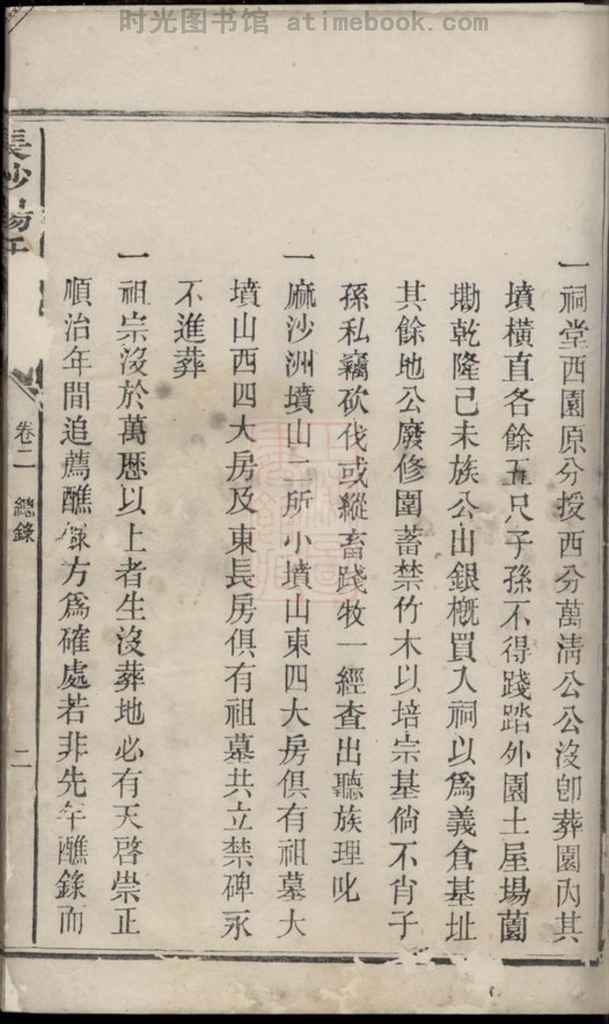 时光图书馆 atimebook.com
一祠堂西園原分授西分萬淸公公沒卽葬園內其
墳橫直各餘五尺子孫不得踐踏外園土屋場薗
墈乾隆己未族公出銀槪買入祠以爲義倉基址
其餘地公廢修圍蓄禁竹木以培宗基倘不肖子
孫私竊砍伐或縱畜踐牧一經查出聽族理叱
一麻沙洲墳山二所小墳山東四大房俱有祖墓大
墳山西四大房及東長房俱有祖墓共立禁碑永
不進葬
一祖宗沒於萬厯以上者生沒葬地必有天啓崇正
順治年間追薦醮錄方爲確處若非先年醮錄而
長沙
卷二 總錄
二